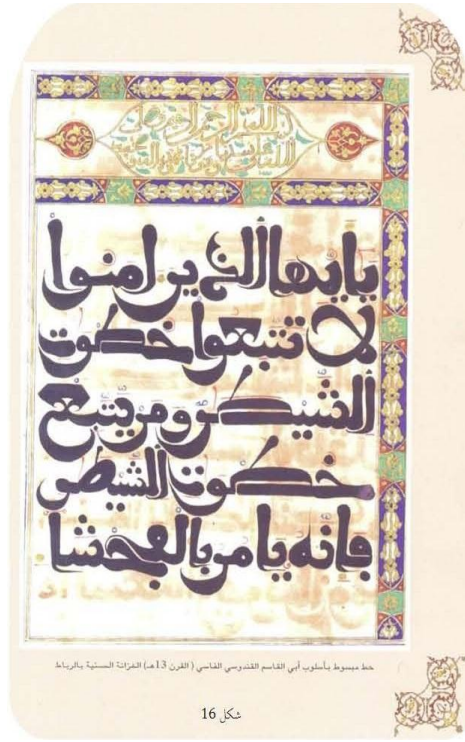 الله الرحمن الرحيم وصلى
يايها الذين امنوا
لا تتبعوا خطوت
الشيطن ومن يتبع
خطوت الشيطن
فإنه يامر بالفحشا
خط مبسوط بأسلوب أبي القاسم القندوسي الفاسي ( القرن 13هـ) الخزانة الحسنية بالرباط
شكل 16